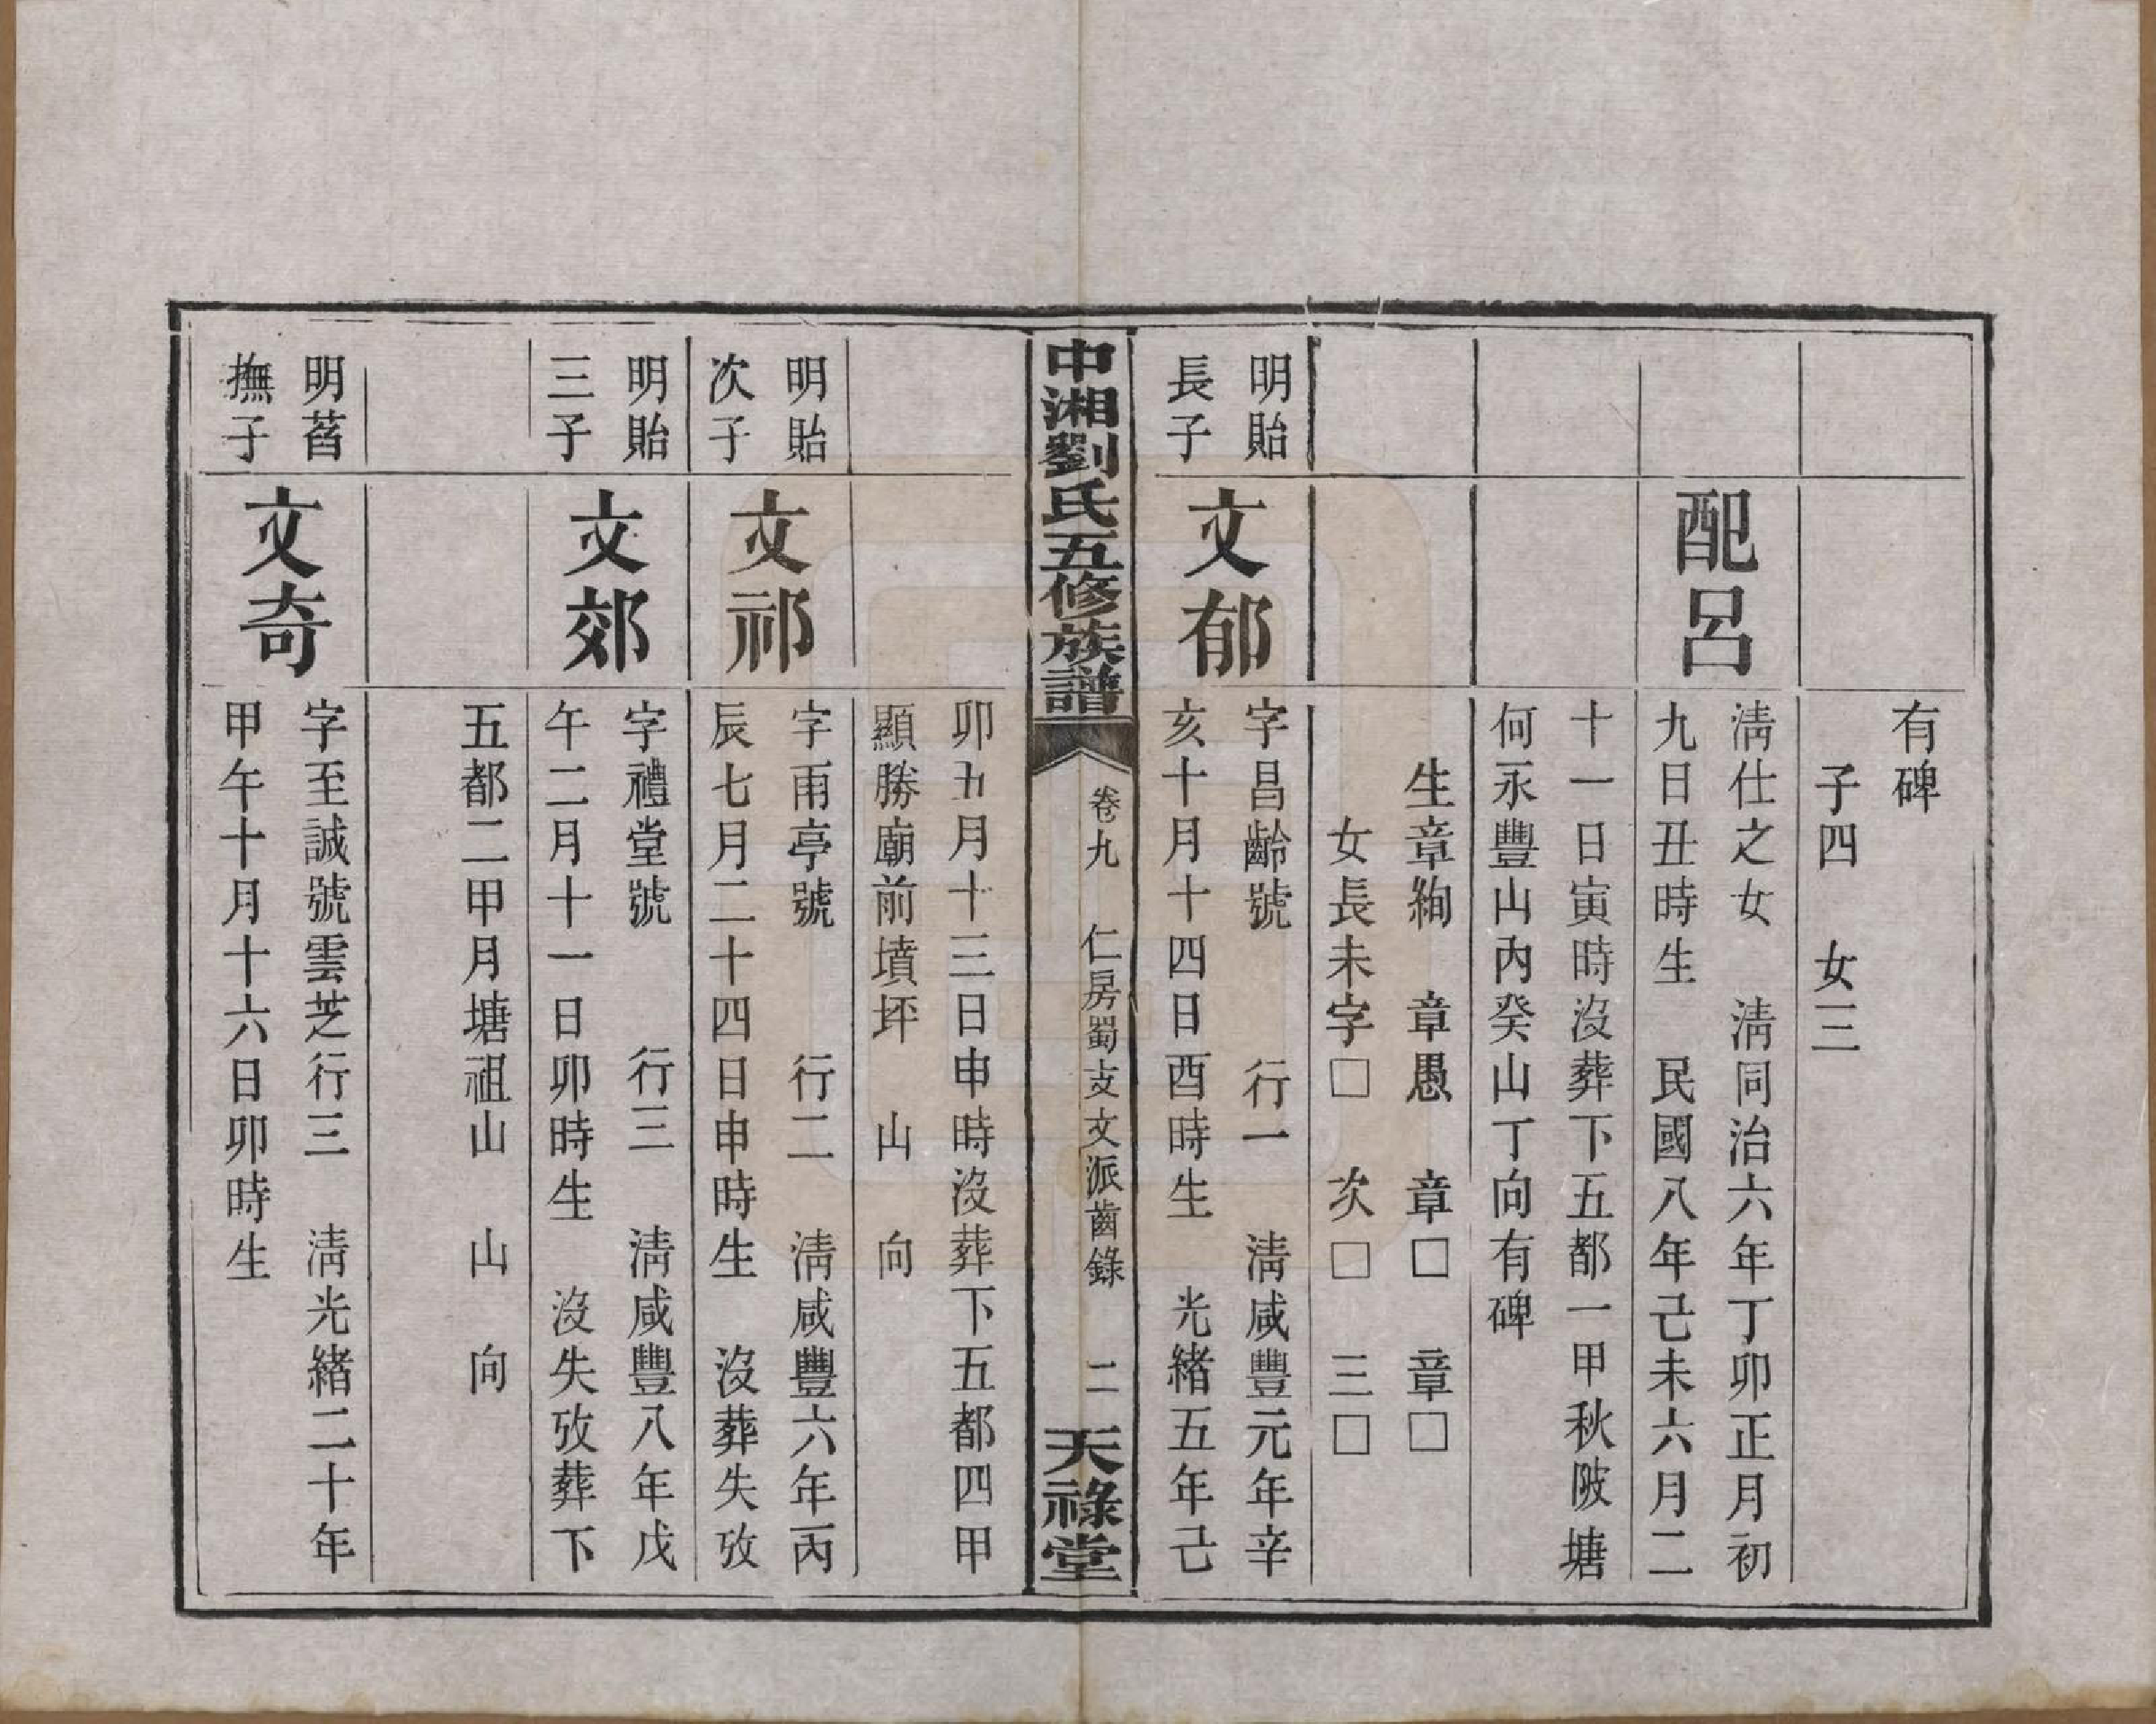 有碑
子四　女三
配呂
淸仕之女　淸同治六年丁卯正月初
九日丑時生　民國八年己未六月二
十一日寅時沒葬下五都一甲秋陂塘
何永豐山內癸山丁向有碑
生章絢　章愚　章□　章□
女長未字□　次□　三□
明貽
長子
文郁
字昌齡號　　行一　淸咸豐元年辛
亥十月十四日酉時生　光緒五年己
中湘劉氏五修族譜
卷九　仁房蜀支文派齒錄　二
天祿堂
卯五月十三日申時沒葬下五都四甲
顯勝廟前墳坪　山　向
明貽
次子
文祁
字雨亭號　　行二　淸咸豐六年丙
辰七月二十四日申時生　沒葬失攷
明貽
三子
文郊
字禮堂號　　行三　淸咸豐八年戊
午二月十一日卯時生　沒失攷葬下
五都二甲月塘祖山　山　向
明萿
撫子
文奇
字至誠號雲芝行三　淸光緒二十年
甲午十月十六日卯時生